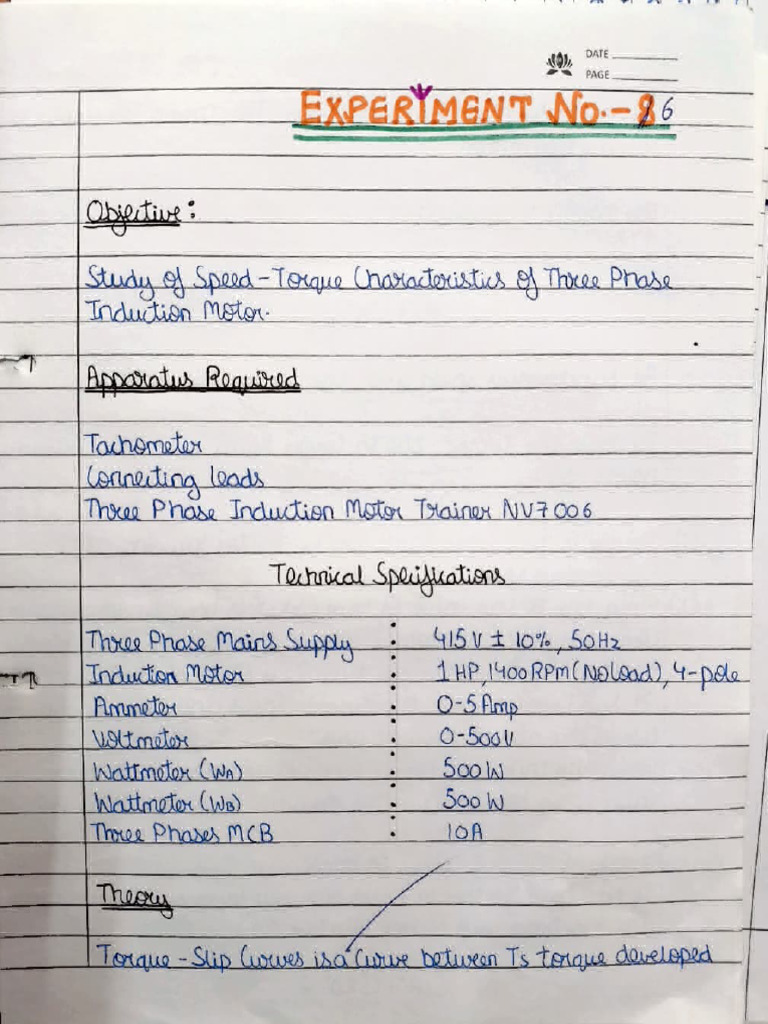 DATE
PAGE
EXPERIMENT No.-6
Objective:
Study of Speed-Torque Characteristics of Three Phase
Induction Motor.
Apparatus Required
Tachometer
Connecting leads
Three Phase Induction Motor Trainer NV7006
Technical Specifications
Three Phase Mains Supply : 415V ± 10%, 50Hz
Induction Motor : 1HP, 1400RPM(No load), 4-pole
Ammeter : 0-5Amp
Voltmeter : 0-500V
Wattmeter (WA) : 500W
Wattmeter (WB) : 500W
Three Phases MCB : 10A
Theory
Torque-Slip Curves is a Curve between Ts torque developed